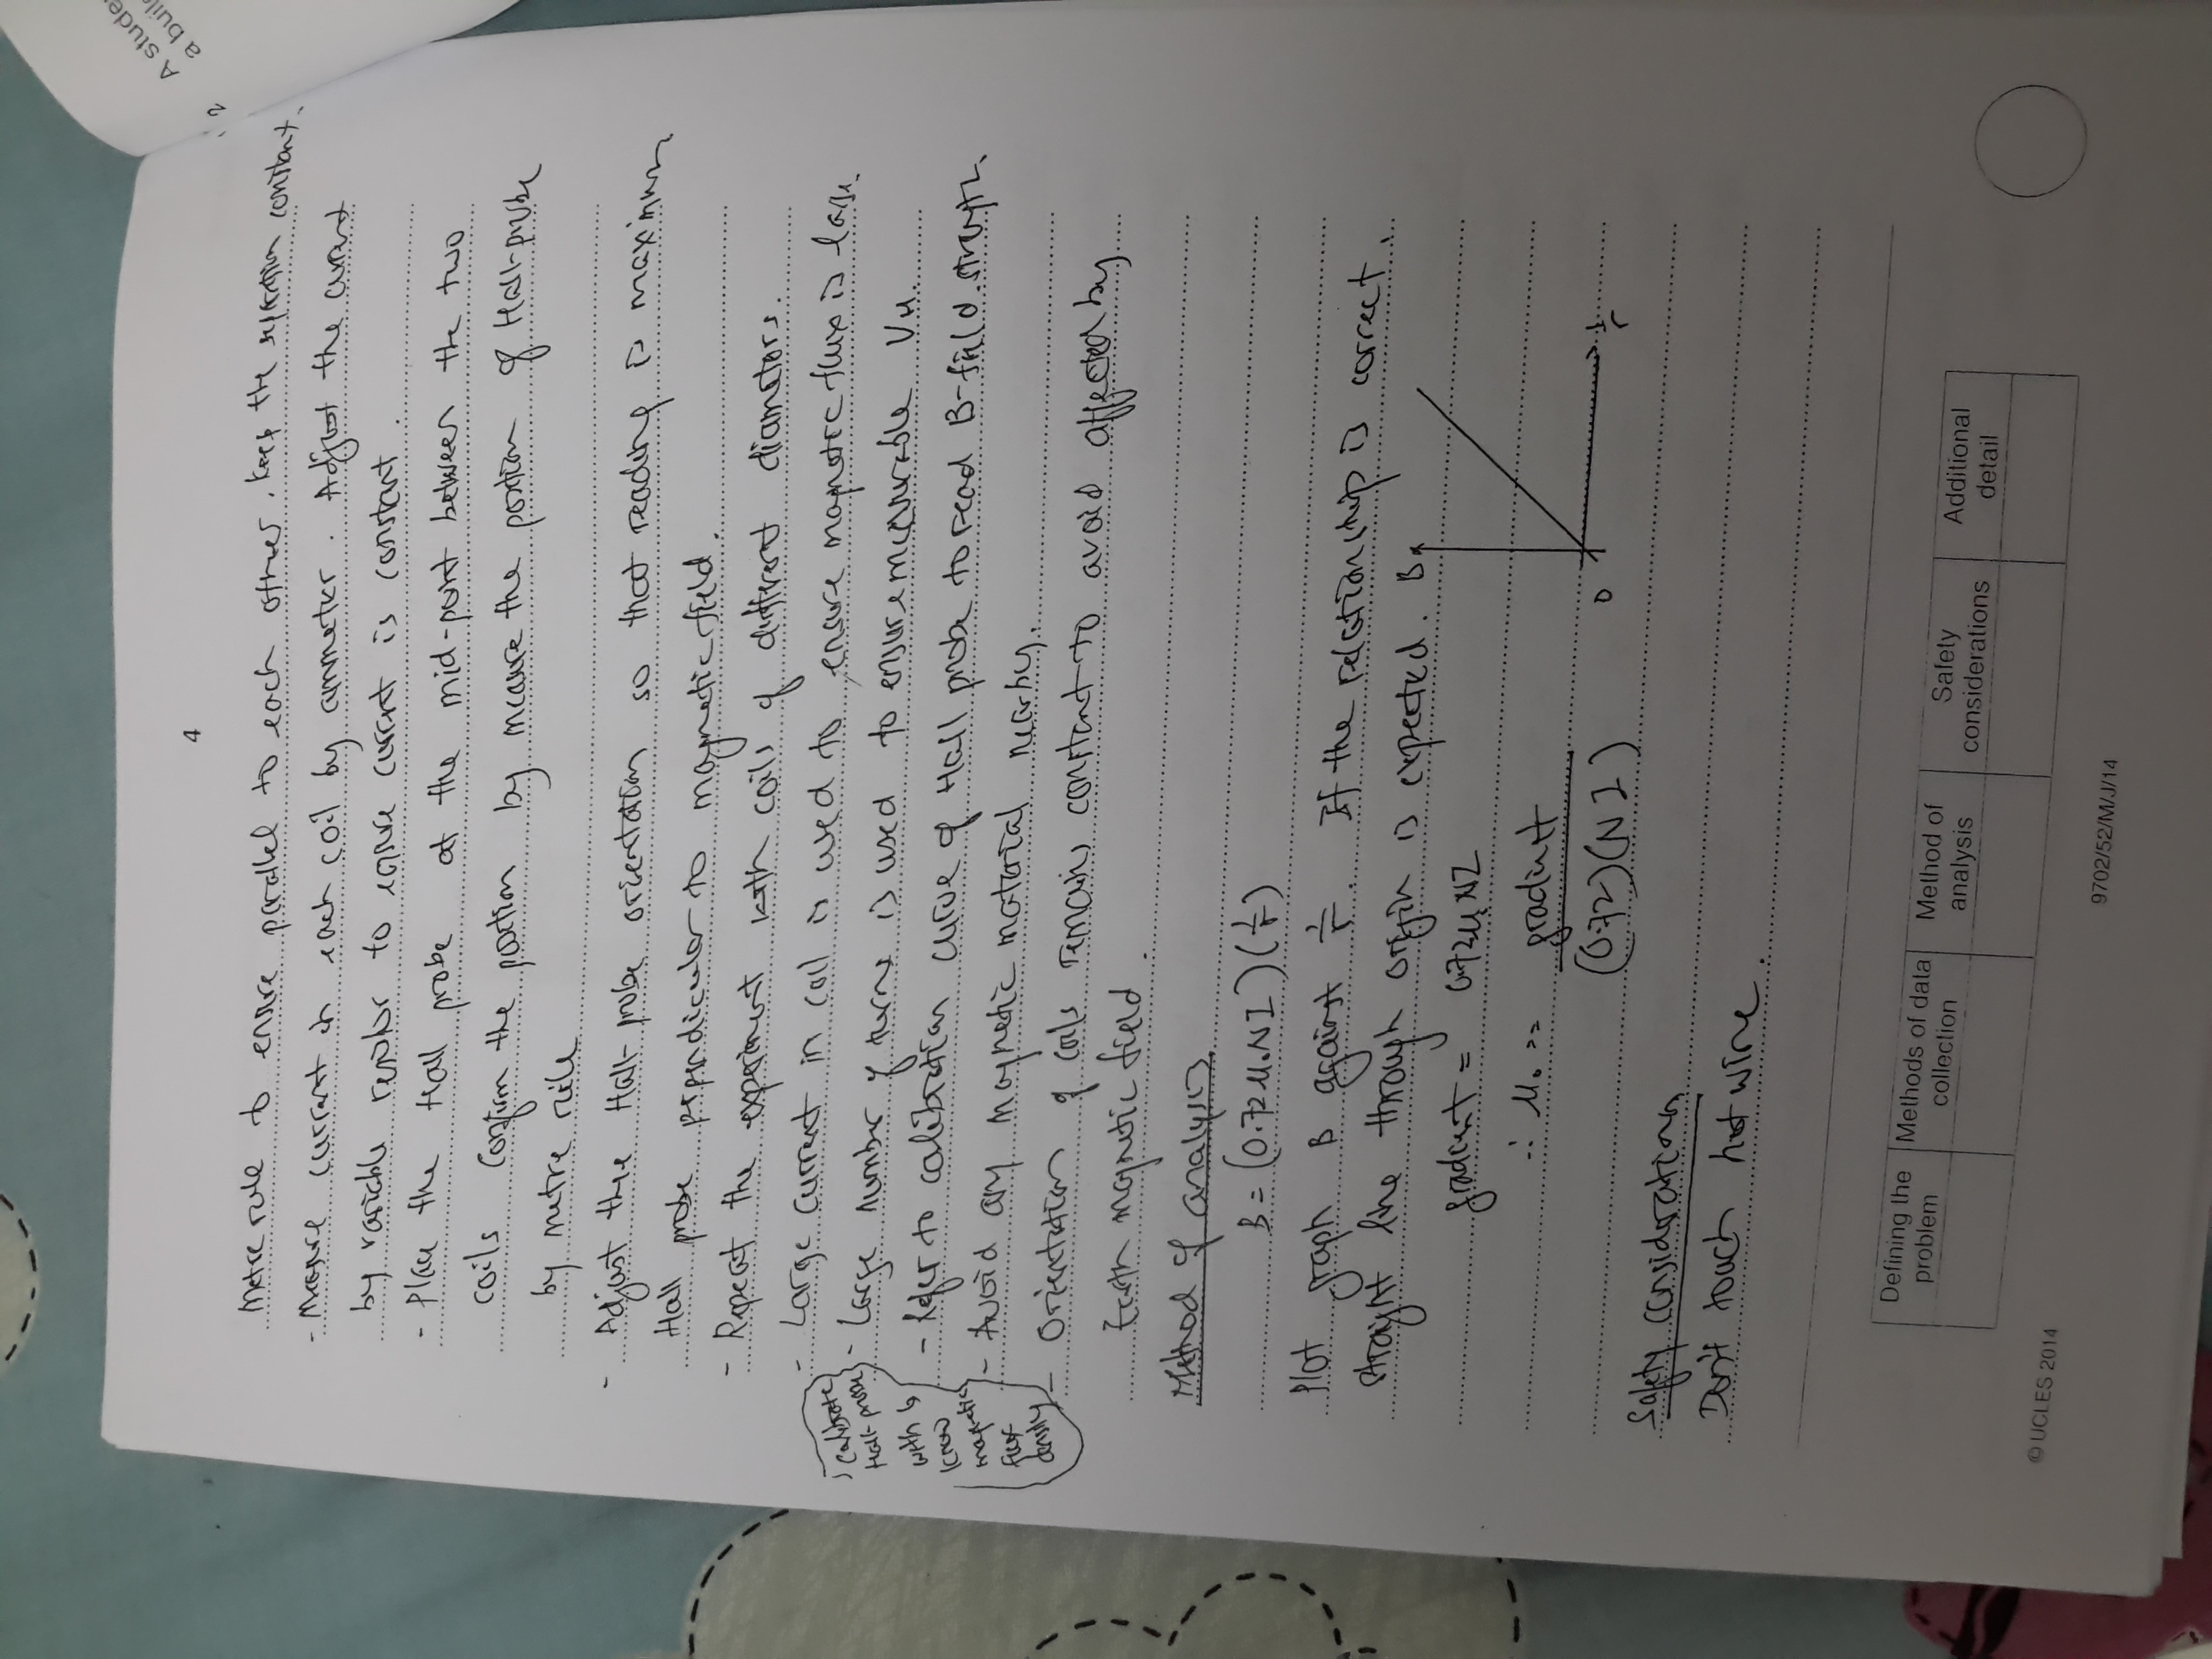 4
Metre rule to ensure parallel to each other. Keep the separation constant.
- Measure current in each coil by ammeter. Adjust the current
by variable resistor to ensure current is constant.
- Place the Hall probe at the mid-point between the two
coils Confirm the position by measure the position of Hall-probe
by metre rule
- Adjust the Hall-probe orientation so that reading is maximum
Hall probe perpendicular to magnetic field.
- Repeat the experiment with coils of different diameters.
- Large current in coil is used to ensure magnetic flux is large.
- Large number of turns is used to ensure measurable VH.
- Refer to calibration curve of Hall probe to read B-field strength.
- Avoid any magnetic material nearby.
- Orientation of coils remains constant to avoid affected by
Earth magnetic field.
Calibrate
Hall-probe
with
know
magnetic
flux
density
Method of analysis
B = (0.72 μ₀NI)(1/r)
Plot graph B against 1/r. If the relationship is correct,
straight line through origin is expected.
B
gradient = 0.72μ₀NI
∴ μ₀ = gradient
(0.72)(NI)
0
1/r
Safety considerations
Don't touch hot wire.
Defining the problem
Methods of data collection
Method of analysis
Safety considerations
Additional detail
© UCLES 2014
9702/52/M/J/14
2
A stude
a buil